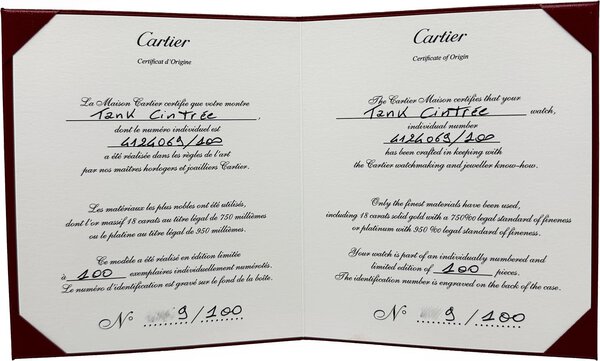 Cartier
Certificat d'Origine
La Maison Cartier certifie que votre montre
Tank Cintrée,
dont le numéro individuel est
4124069/100
a été réalisée dans les règles de l'art
par nos maîtres horlogers et joailliers Cartier.
Les matériaux les plus nobles ont été utilisés,
dont l'or massif 18 carats au titre légal de 750 millièmes
ou le platine au titre légal de 950 millièmes.
Ce modèle a été réalisé en édition limitée
à 100 exemplaires individuellement numérotés.
Le numéro d'identification est gravé sur le fond de la boîte.
N° 9/100
Cartier
Certificate of Origin
The Cartier Maison certifies that your
Tank Cintrée watch,
individual number
4124069/100
has been crafted in keeping with
the Cartier watchmaking and jeweller know-how.
Only the finest materials have been used,
including 18 carats solid gold with a 750‰ legal standard of fineness
or platinum with 950 ‰ legal standard of fineness.
Your watch is part of an individually numbered and
limited edition of 100 pieces.
The identification number is engraved on the back of the case.
N° 9/100